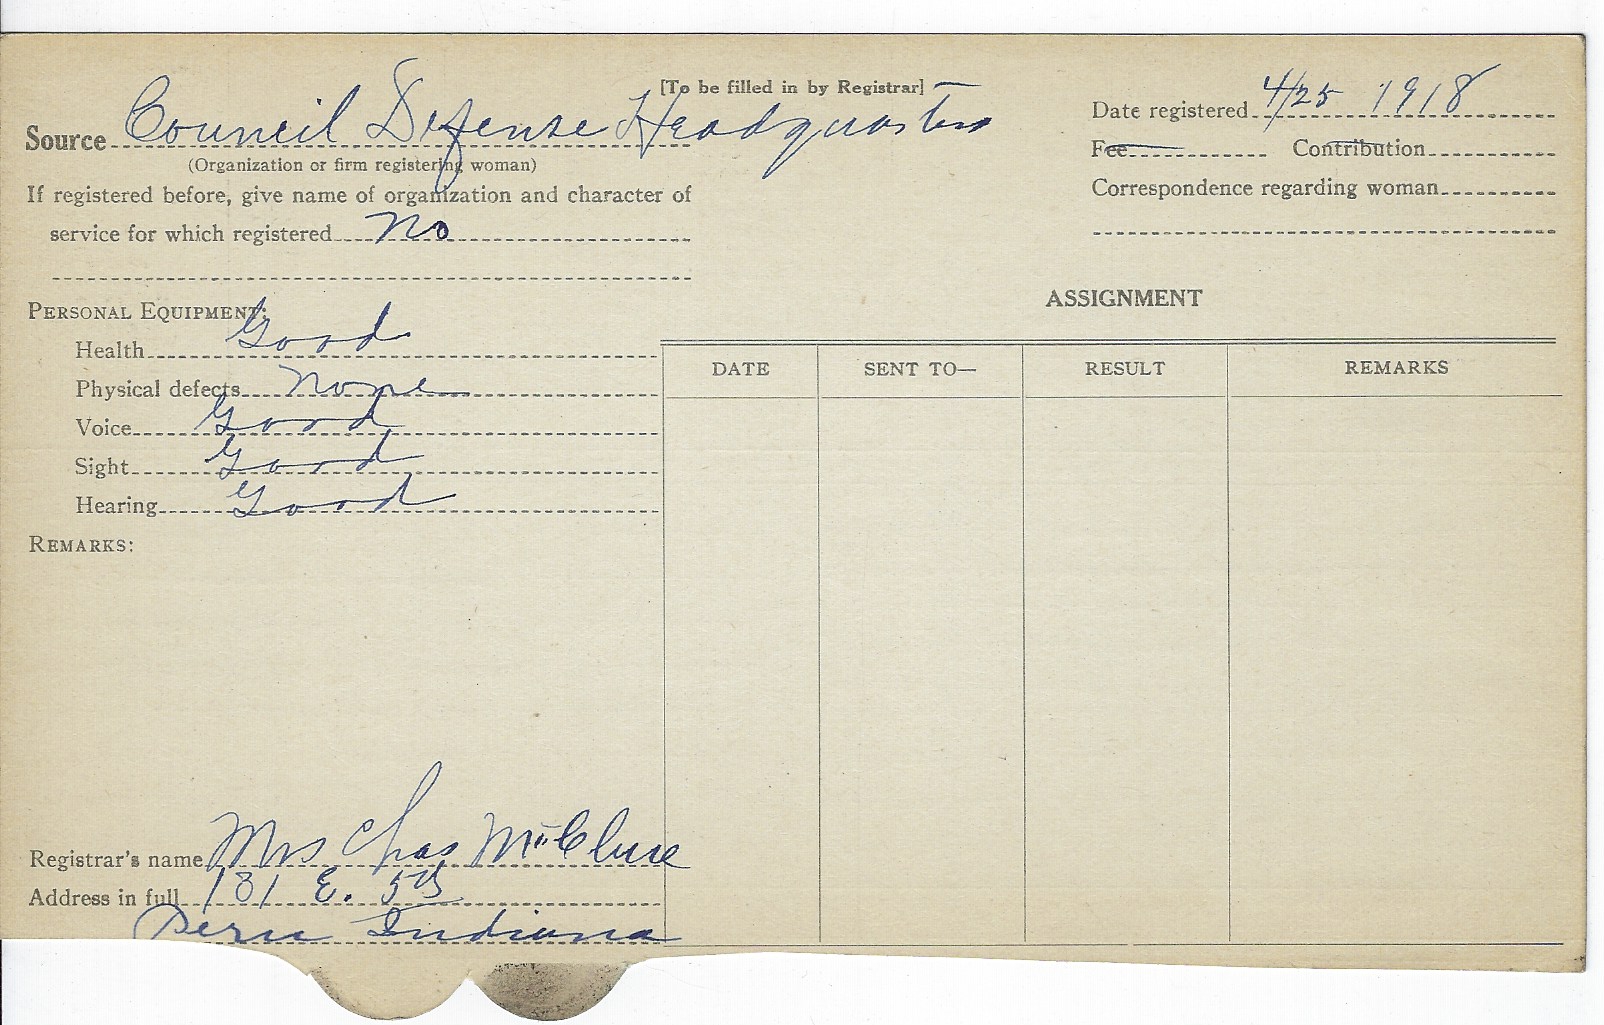 [To be filled in by Registrar]
Source Council Defense Headquarters
(Organization or firm registering woman)
If registered before, give name of organization and character of
service for which registered No
Date registered 4/25 1918
Fee Contribution
Correspondence regarding woman
PERSONAL EQUIPMENT:
Health Good
Physical defects None
Voice Good
Sight Good
Hearing Good
REMARKS:
ASSIGNMENT
DATE SENT TO— RESULT REMARKS
Registrar's name Mrs Chas McClure
Address in full 181 E. 5th
Peru Indiana